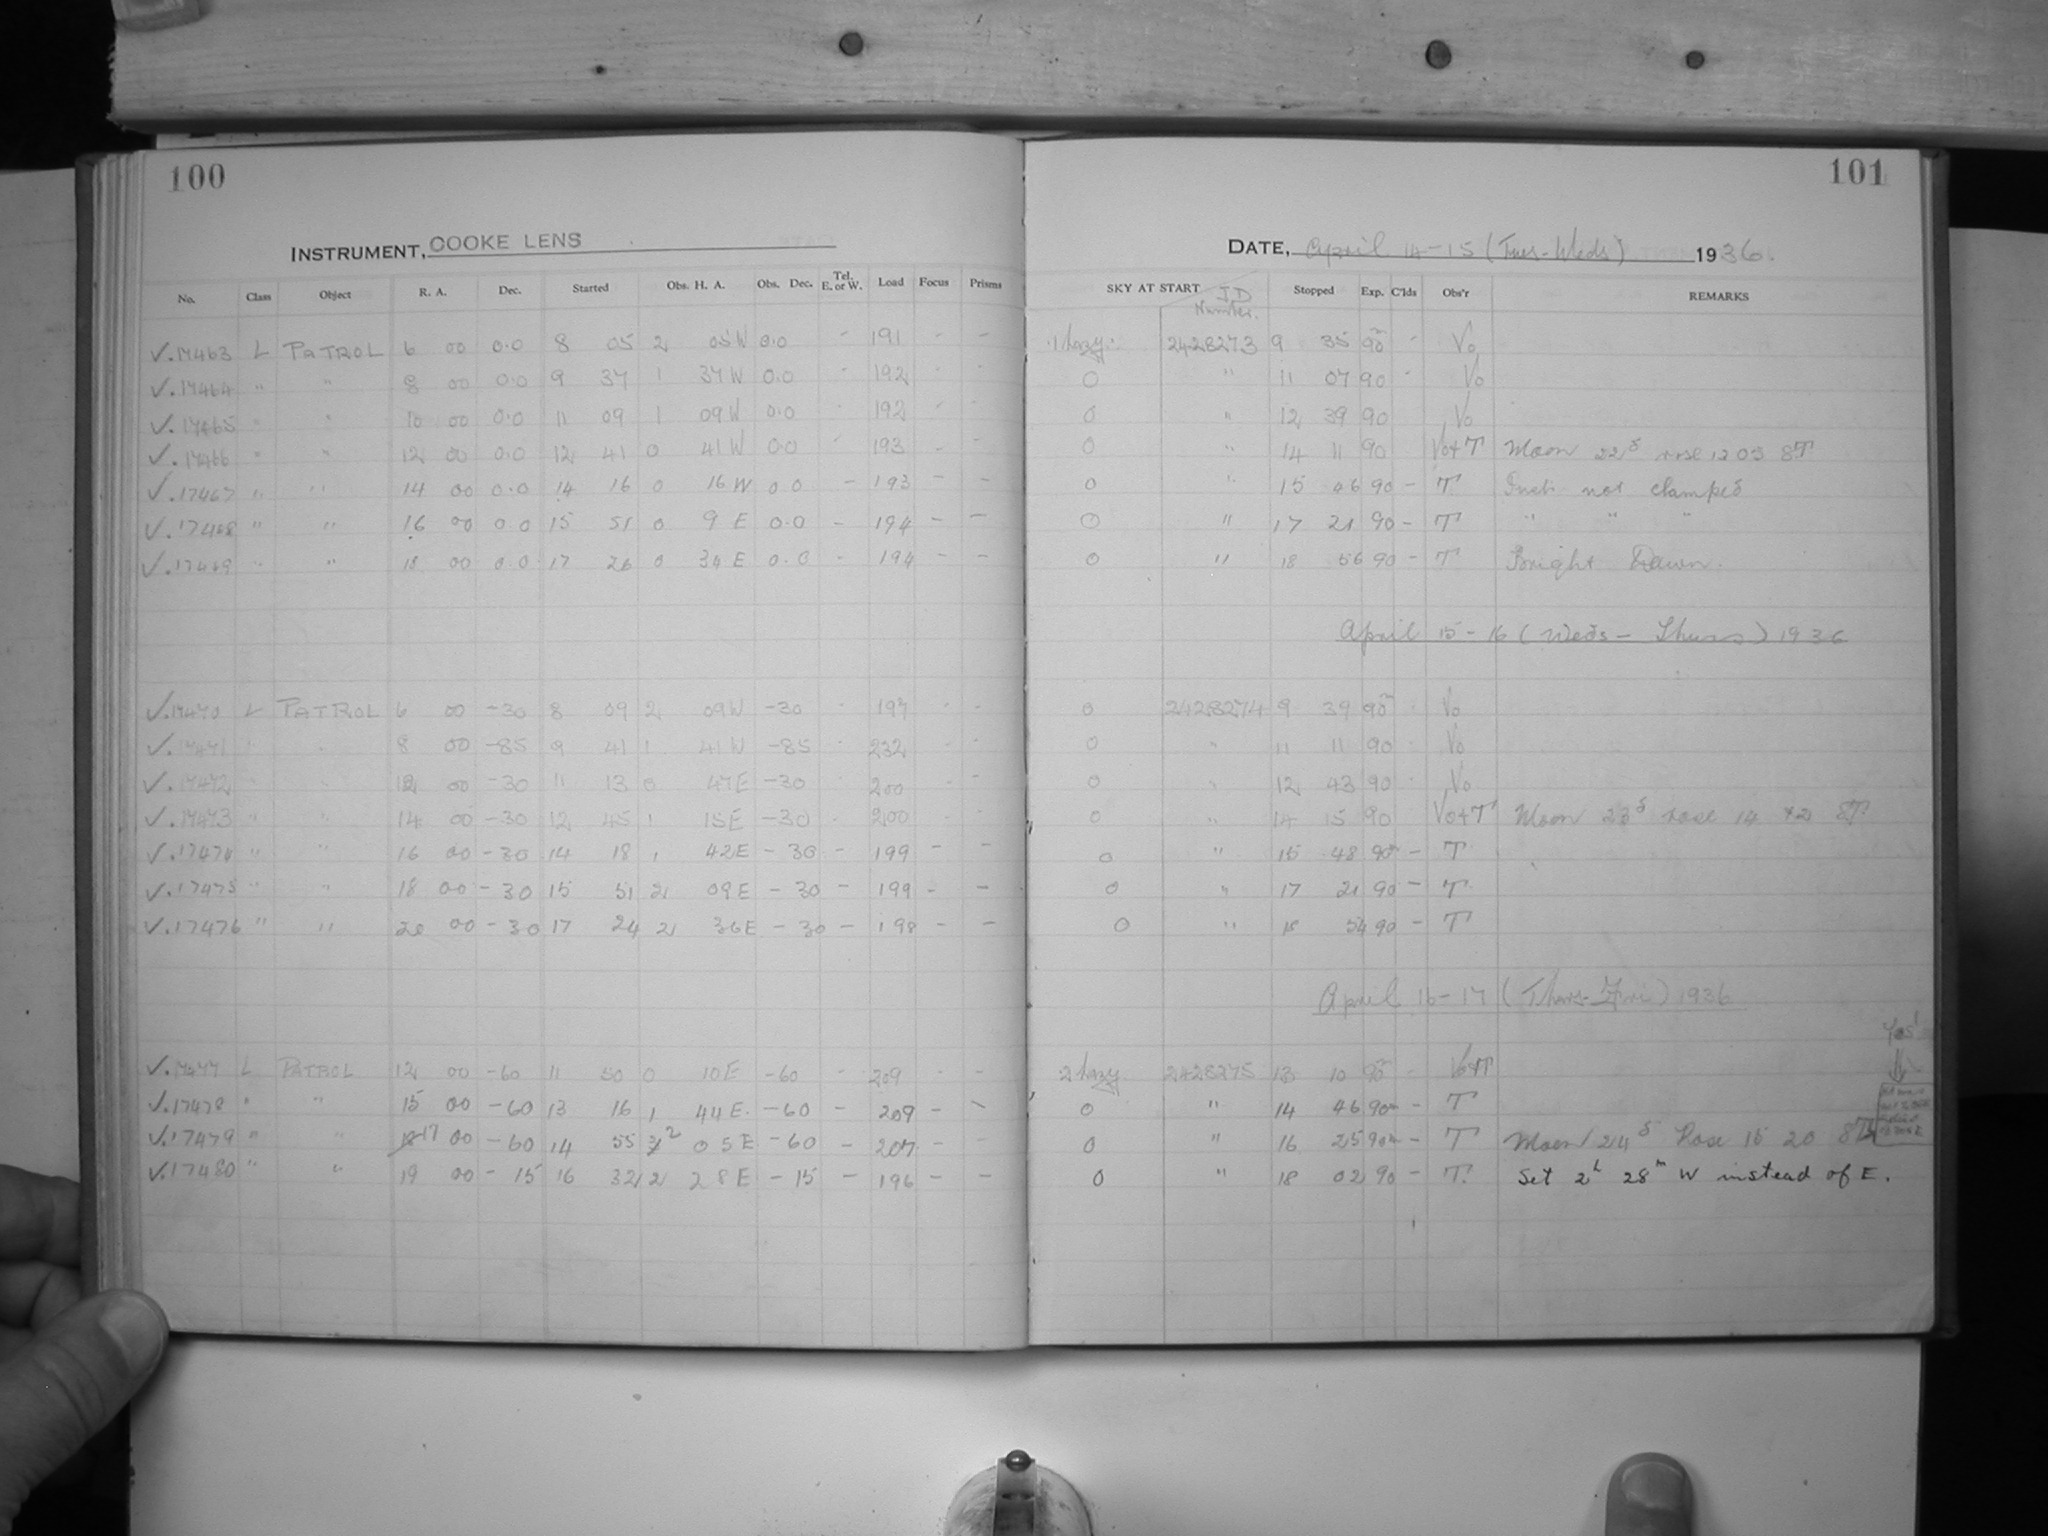 100
101
INSTRUMENT, COOKE LENS
DATE, April 14-15 (Tues-Weds) 1936
No. Class Object R. A. Dec. Started Obs. H. A. Obs. Dec. Tel. E. or W. Load Focus Prisms SKY AT START JD Number. Stopped Exp. C'lds Obs'r REMARKS
✓.17463 L PATROL 6 00 0.0 8 05 2 05W 0.0 - 191 - - 1 hazy 2428273 9 35 90 - Vo
✓.17464 " " 8 00 0.0 9 37 1 37W 0.0 - 192 - - 0 " 11 07 90 - Vo
✓.17465 " " 10 00 0.0 11 09 1 09W 0.0 - 192 - - 0 " 12 39 90 Vo
✓.17466 " " 12 00 0.0 12 41 0 41W 0.0 - 193 - - 0 " 14 11 90 Vo+T Moon 22d rose 12 03 ST
✓.17467 " " 14 00 0.0 14 16 0 16W 0.0 - 193 - - 0 " 15 46 90 - T Inst. not clamped
✓.17468 " " 16 00 0.0 15 51 0 9 E 0.0 - 194 - - 0 " 17 21 90 - T " " "
✓.17469 " " 18 00 0.0 17 26 0 34 E 0.0 - 194 - - 0 " 18 56 90 - T Bright Dawn.
April 15-16 (Weds - Thurs) 1936
✓.17470 L PATROL 6 00 -30 8 09 2 09W -30 - 197 - - 0 2428274 9 39 90 Vo
✓.17471 " " 8 00 -85 9 41 1 41W -85 - 232 - - 0 " 11 11 90 Vo
✓.17472 " " 12 00 -30 11 13 0 47E -30 - 200 - - 0 " 12 43 90 Vo
✓.17473 " " 14 00 -30 12 45 1 15E -30 - 200 - - 0 " 14 15 90 Vo+T Moon 23d rose 14 42 ST
✓.17474 " " 16 00 -30 14 18 1 42E -30 - 199 - - 0 " 15 48 90 - T
✓.17475 " " 18 00 -30 15 51 2 09E -30 - 199 - - 0 " 17 21 90 - T
✓.17476 " " 20 00 -30 17 24 2 36E -30 - 198 - - 0 " 18 54 90 - T
April 16-17 (Thurs-Fri) 1936
Yes!
✓.17477 L PATROL 12 00 -60 11 50 0 10E -60 - 209 - - 2 hazy 2428275 13 10 90 - Vo+T
✓.17478 " " 15 00 -60 13 16 1 44E -60 - 209 - - 0 " 14 46 90 - T
✓.17479 " " 17 00 -60 14 55 2 05E -60 - 207 - - 0 " 16 25 90 - T Moon 24d Rose 15 20 ST
✓.17480 " " 19 00 -15 16 32 2 28E -15 - 196 - - 0 " 18 02 90 - T. Set 2h 28m W instead of E.